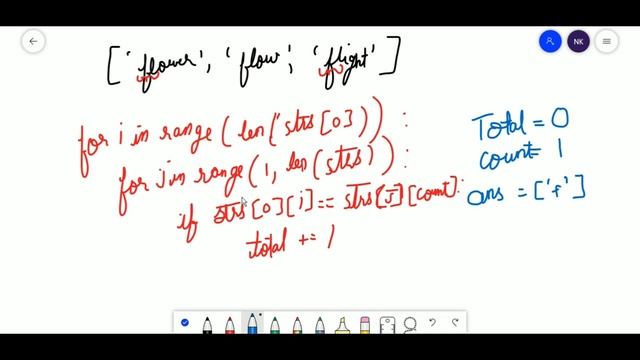 ['flower', 'flow', 'flight']
for i in range (len(strs[0])):
for j in range (1, len(strs)):
if strs[0][i] == strs[j][count]:
total += 1
Total = 0
count = 1
ans = ['f']
NK